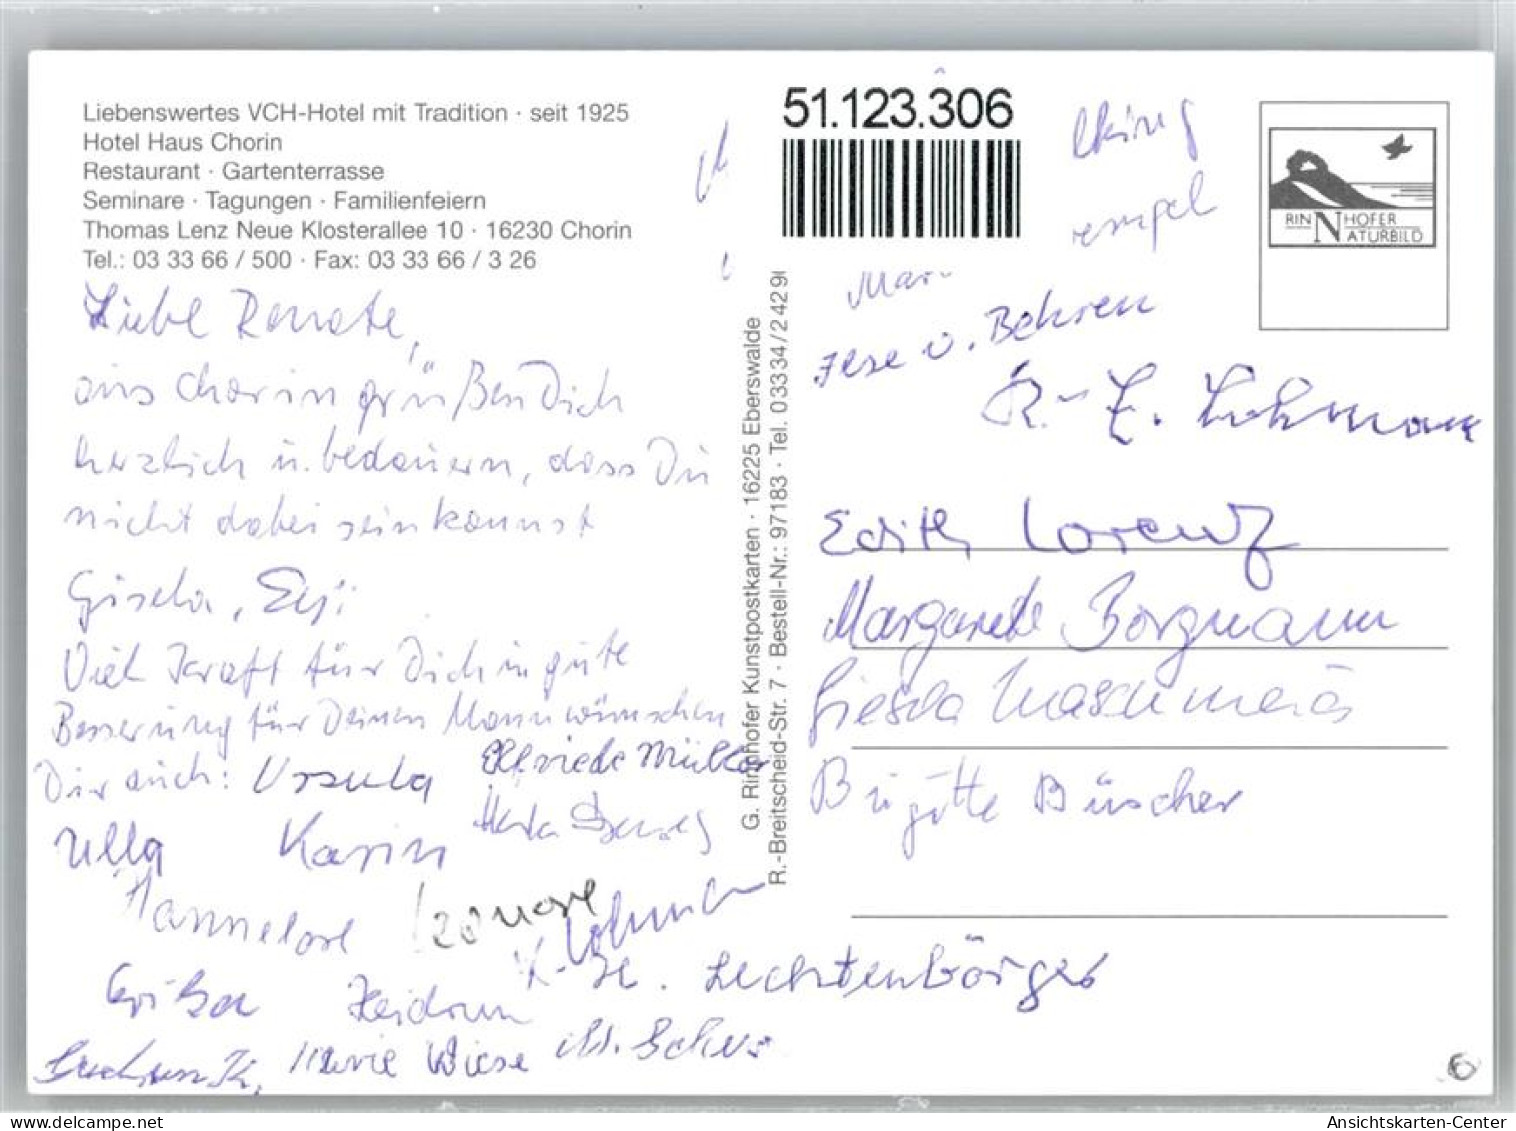 Liebenswertes VCH-Hotel mit Tradition · seit 1925
Hotel Haus Chorin
Restaurant · Gartenterrasse
Seminare · Tagungen · Familienfeiern
Thomas Lenz Neue Klosterallee 10 · 16230 Chorin
Tel.: 03 33 66 / 500 · Fax: 03 33 66 / 3 26
Liebe Renate,
aus Chorin grüßen Dich
herzlich u. bedauern, dass Du
nicht dabei sein kannst
Gisela,
Viel Kraft für Dich u gute
Besserung für Deinen Mann wünschen
Dir auch: Ursula
Elfriede Müller
Herta
Ulla Karin
Hannelore
Erika Heidrun
Wiese
G. Rinnhofer Kunstpostkarten · 16225 Eberswalde
R.-Breitscheid-Str. 7 · Bestell-Nr.: 97183 · Tel. 03334/2429
51.123.306
RINNHOFER
NATURBILD
Ilse v. Behren
Edith Lorenz
Margarete Borgmann
Gisela
Brigitte Büscher
Lechtenbörger
6
delcampe.net
Ansichtskarten-Center